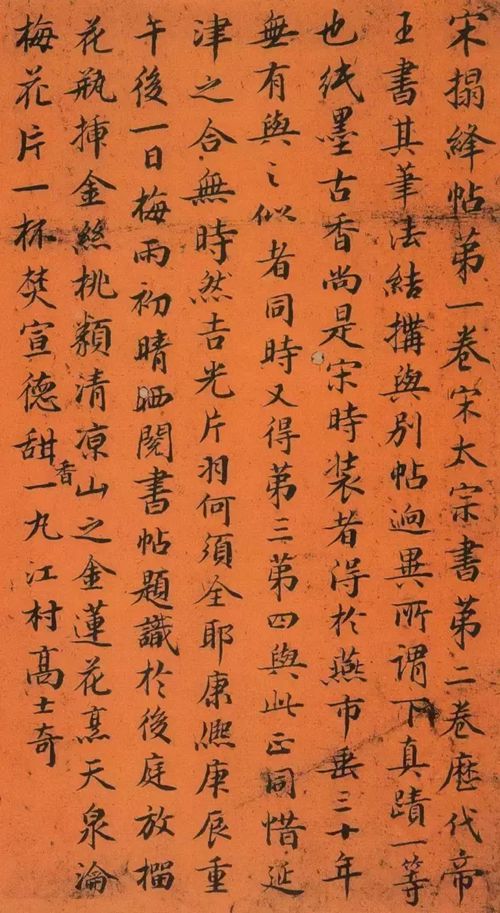 宋搨絳帖第一卷宋太宗書第二卷歷代帝
王書其筆法結搆與別帖逈異所謂下真蹟一等
也紙墨古香尚是宋時装者得於燕市垂三十年
無有與之似者同時又得第三第四與此正同惜延
津之合無時然吉光片羽何須全耶康熙庚辰重
午後一日梅雨初晴晒閱書帖題識於後庭放榴
花瓶挿金絲桃類清涼山之金蓮花烹天泉瀹
梅花片一杯焚宣德甜香一丸江村高士奇